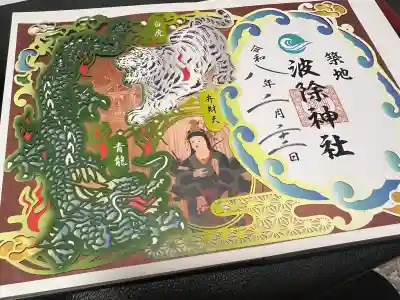 築地
波除神社
令和八年一月二十二日
白虎
弁財天
青龍